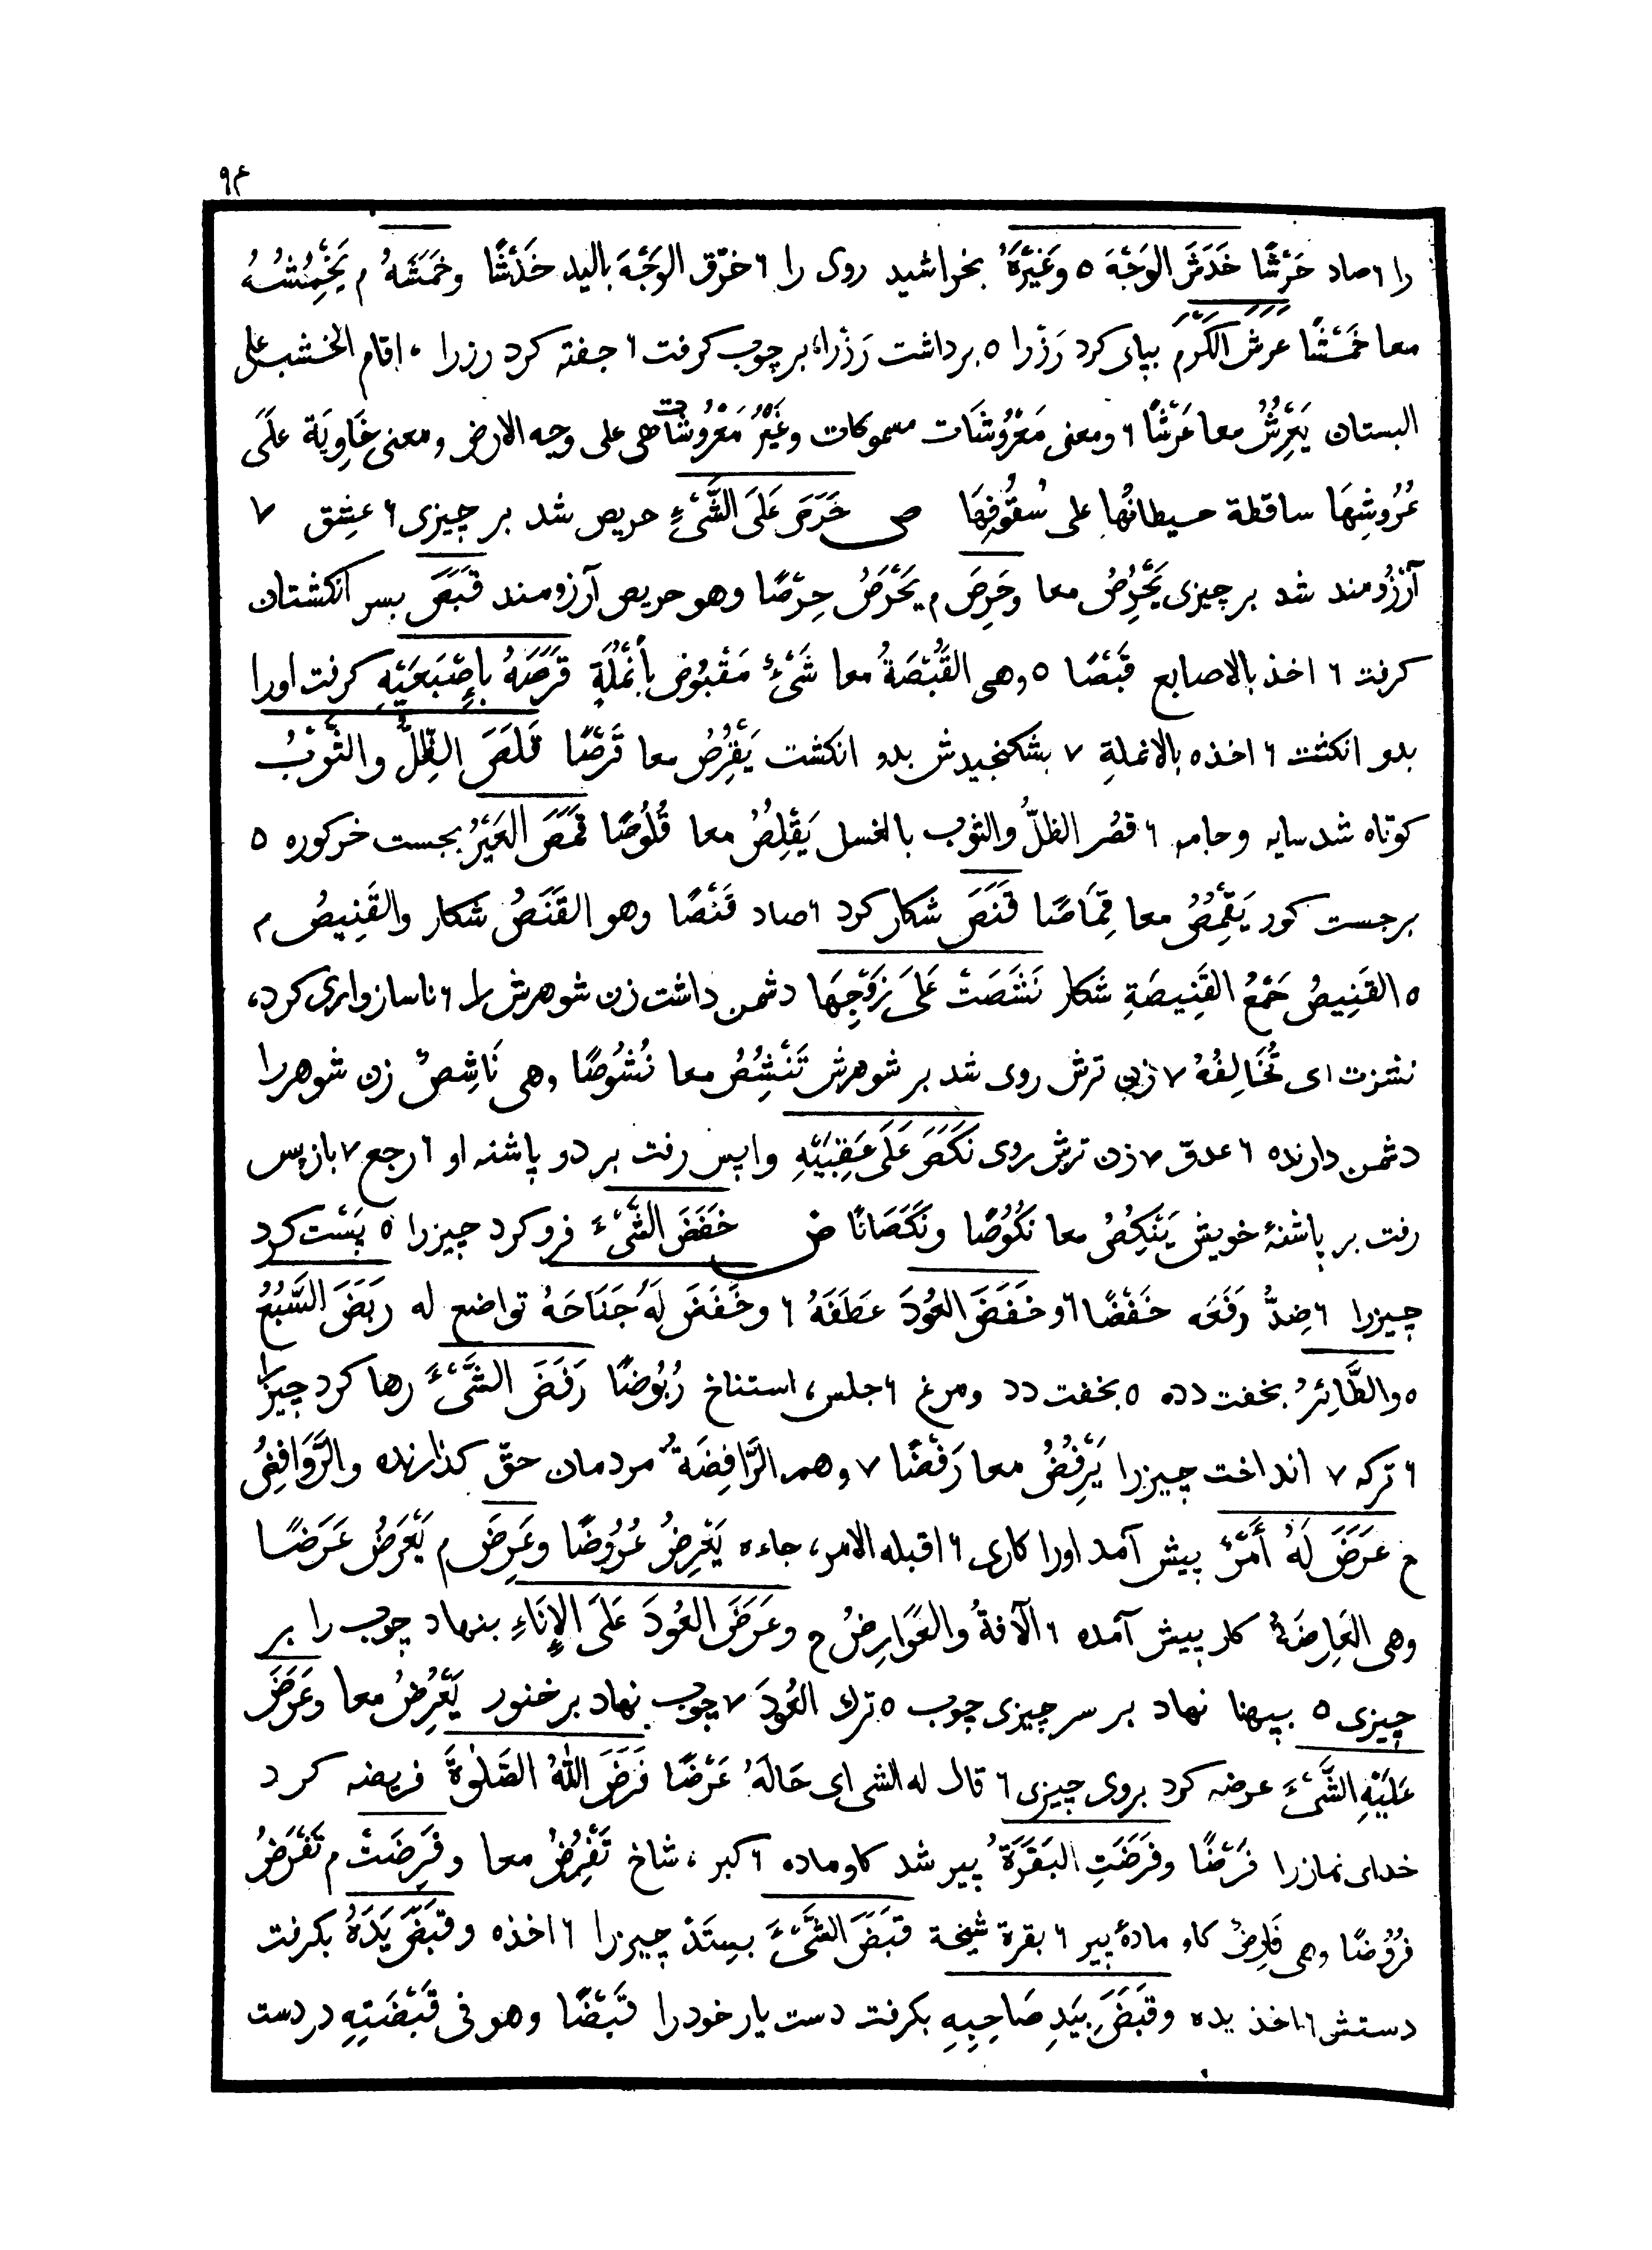 ٩٤
را ٦ صاد حَرْشًا خَدَشَ الوَجْهَ ٥ وَغَيْرَهُ بخراشيد روى را ٦ خرّق الوَجْهَ باليد خَدْشًا وخَمَشَهُ م يَخْمِشُهُ
معا خَمْشًا عَرَشَ الكَرْمَ بپاى كرد رَزْرا ٥ برداشت رَزْرا، بر چوب كرفت ٦ جفته كرد رزرا ، اقام الخشب على
البستان يَعْرِشُ معا عَرْشًا ٦ ومعنى مَعْرُوشَات مسموكات وغَيْرُ مَعْرُوشَات هى على وجه الارض ومعنى خَاوِيَة عَلَى
عُرُوشِهَا ساقطة حيطانُها على سُقُوفِهَا ص حَرَصَ عَلَى الشَّىْءِ حريص شد بر چيزى ٦ عشِق ٧
آرزُومند شد بر چيزى يَحْرِصُ معا وحَرِصَ م يَحْرَصُ حِرْصًا وهو حريص آرزومند قَبَصَ بسر انكشتان
كرفت ٦ اخذ بالاصابع قَبْصًا ٥ وهى القَبْصَةُ معا شَىْءٌ مَقْبُوض بأَنْمُلَةٍ قَرَصَهُ بِإِصْبَعَيْهِ كرفت اورا
بدو انكشت ٦ اخذه بالانملةِ ٧ بشكنجيدش بدو انكشت يَقْرِصُ معا قَرْصًا قَلَصَ الظِّلُّ والثَّوْبُ
كوتاه شد سايه وجامه ٦ قصُر الظلُّ والثوب بالغسل يَقْلِصُ معا قُلُوصًا قَمَصَ العَيْرُ بجست خركوره ٥
برجست كور يَقْمِصُ معا قِمَاصًا قَنَصَ شكار كرد ٦ صاد قَنْصًا وهو القَنَصُ شكار والقَنِيصُ م
٥ القَنِيصُ جَمْعُ القَنِيصَةِ شكار نَشَصَتْ عَلَى زَوْجِهَا دشمن داشت زن شوهرش را ٦ ناسازوارى كرد،
نشزت اى تُخَالِفُهُ ٧ زن ترش روى شد بر شوهرش تَنْشِصُ معا نُشُوصًا وهى نَاشِصٌ زن شوهر را
دشمن دارنده ٦ عدوّ ٧ زن ترش روى نَكَصَ عَلَى عَقِبَيْهِ واپس رفت بر دو پاشنه او ٦ رجع ٧ بازپس
رفت بر پاشنهٔ خويش يَنْكِصُ معا نُكُوصًا ونَكَصَانًا ض خَفَضَ الشَّىْءَ فرو كرد چيزرا ٥ پَسْت كرد
چيزرا ٦ ضِدُّ رَفَعَه خَفْضًا ٦ وخَفَضَ العُودَ عَطَفَهُ ٦ وخَفَضَ لِهُ جَنَاحَهُ تواضع له رَبَضَ السَّبُعُ
٥ والطَّائِرُ بخفت دده ٥ بخفت دد ومرغ ٦ جلس، استناخ رُبُوضًا رَفَضَ الشَّىْءَ رها كرد چيزرا
٦ تركه ٧ انداخت چيزرا يَرْفِضُ معا رَفْضًا ٧ وهم الرَّافِضَةُ مردمان حقّ كذارنده والرَّوَافِضُ
ج عَرَضَ لَهُ أَمْرٌ پيش آمد اورا كارى ٦ اقبله الامر، جاءه يَعْرِضُ عُرُوضًا وعَرِضَ م يَعْرَضُ عَرَضًا
وهى العَارِضَةُ كار پيش آمده ٦ الآفةُ والعَوَارِضُ ج وعَرَضَ العُودَ عَلَى الإِنَاءِ بنهاد چوب را بر
چيزى ٥ بپهنا نهاد بر سر چيزى چوب ٥ ترك العُودَ ٧ چوب نهاد بر خنور يَعْرِضُ معا وعَرَضَ
عَلَيْهِ الشَّىْءَ عرضه كرد بروى چيزى ٦ قال له الشى اى حَالَهُ عَرْضًا فَرَضَ اللهُ الصَّلَوٰةَ فريضه كرد
خداى نمازرا فَرْضًا وفَرَضَتِ البَقَرَةُ پير شد كاوماده ٦ كبر ، شاخ تَفْرِضُ معا وفَرِضَتْ م تَفْرَضُ
فُرُوضًا وهى فَارِضٌ كاو مادهٔ پير ٦ بقرة شيخة قَبَضَ الشَّىْءَ بسِتَدْ چيزرا ٦ اخذه وقَبَضَ يَدَهُ بكرفت
دستش ٦ اخذ يده وقَبَضَ بِيَدِ صَاحِبِهِ بكرفت دست يار خودرا قَبْضًا وهو فى قَبْضَتِهِ در دست